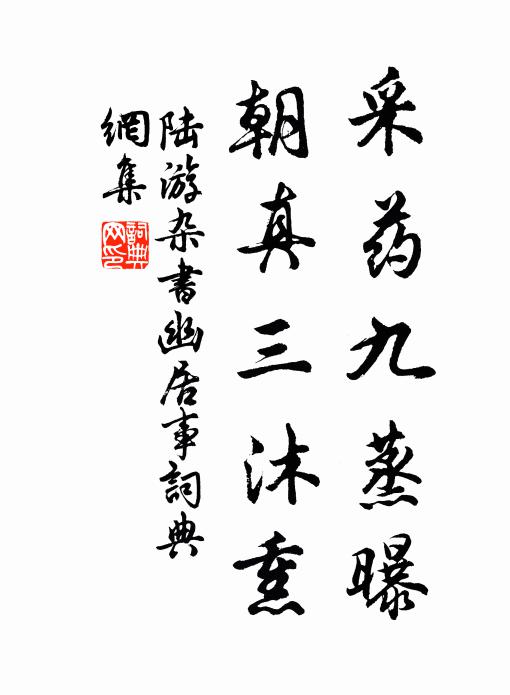 采药九蒸曝
朝真三沐熏
陆游杂书幽居事詞典
網集
詞典網印